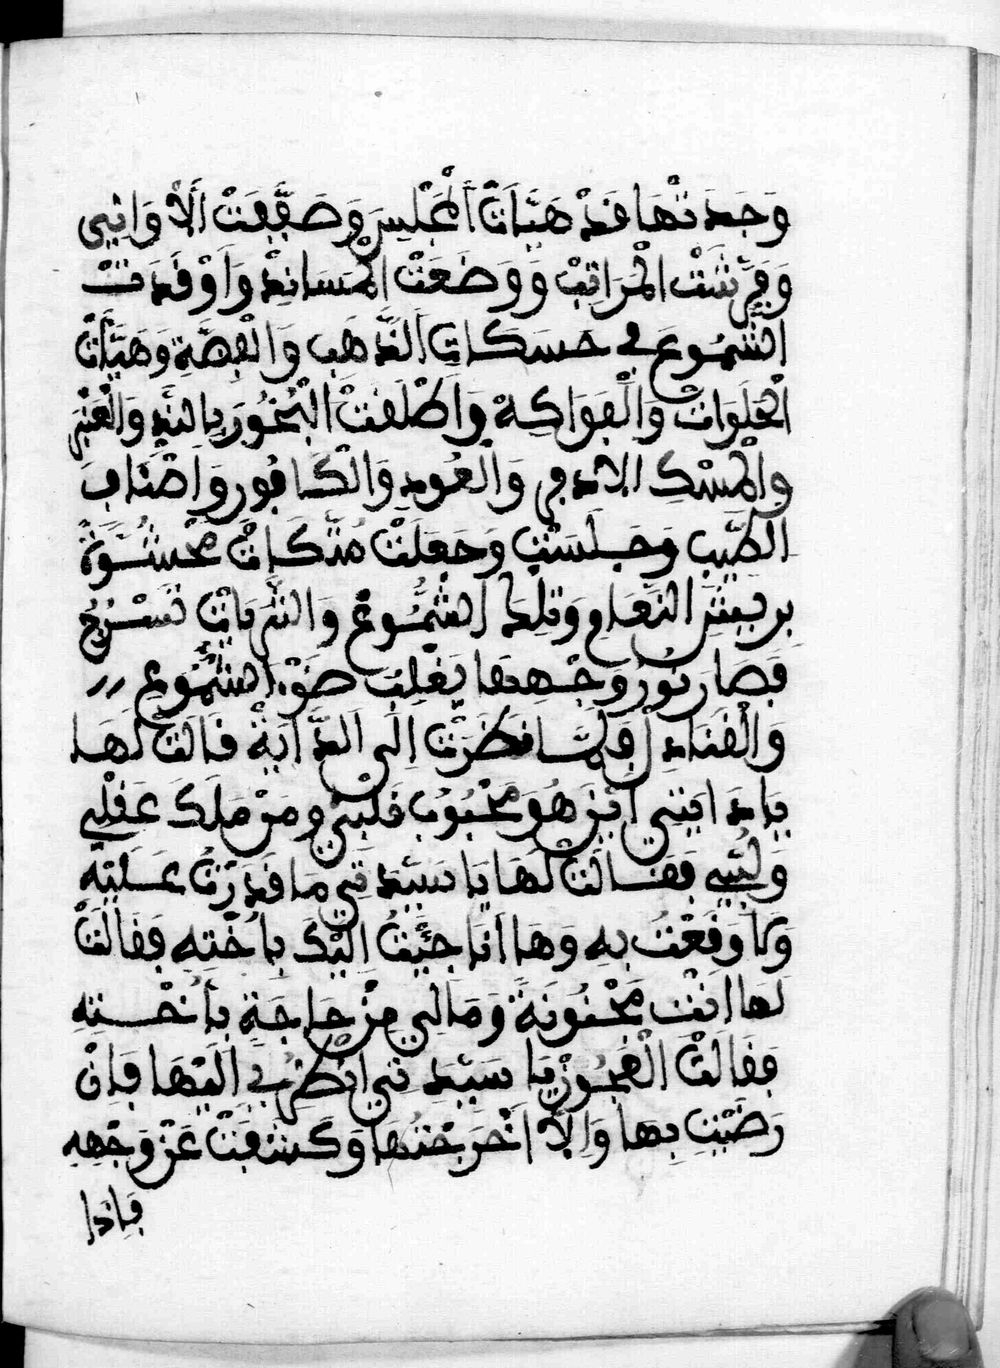 وَجَدَتْهَا قَدْ هَيَّاَتْ اَلْمَجْلِسَ وَصَقَّعَتْ اَلْاَوَانِي
وَفَرَّشَتْ الْمَرَاتِبْ وَوَضَعَتْ الْمَسَانِدْ وَاَوْقَدَتْ
الشُّمُوعَ فِي حَسَكَاتِ اَلذَّهَبِ وَالْفِضَّةِ وَهَيَّأَتْ
الْحَلَوَاتْ وَالْفَوَاكِهْ وَاَطْلَقَتْ الْبُخُورَ بِالنَّدِ وَالْعَنْبَرِ
وَالْمِسْكِ الاذفر وَالْعُودِ وَالْكَافُورِ وَاَصْنَافِ
الطِّيبِ وَجَلَسَتْ وَجَعَلَتْ مُتَّكَاتْ مَحْشُوَّةً
بريش النَّعَامِ وَتِلكَ الشُّمُوعْ وَالثُّرَيَاتْ تَسْرُجُ
فَصَارَ نُورُ وَجْهِهَا يَغْلِبُ ضَوْءَ الشُّمُوعِ
وَالْقَنَادِلْ فَلَمَّا نَظَرَتْ اِلَى الدَّايَةْ قَالَتْ لَهَا
يَا دَايَتِي اَيْنَ هُوَ مَحْبُوبْ قَلْبِي وَمَنْ مَلَكَ عَقْلِي
وَلُبِّي فَقَالَتْ لَهَا يَا سَيِّدَتِي مَا قَدَرْتُ عَلَيْهِ
وَلَا وَقَعْتُ بِهِ وَهَا اَنَا جِئْتُ اِلَيْكِ بِاُخْتِهِ فَقَالَتْ
لَهَا اَنْتِ مَجْنُونَةً وَمَالِي مِنْ حَاجَةٍ بِأُخْتِهِ
فَقَالَتْ الْعَجُوزْ يَا سَيِّدَتِي اُنْظُرِي اِلَيْهَا فَاِنْ
رَضَيْتِ بِهَا وَاِلَّا اَخْرَجْتُهَا وَكَشَفَتْ عَنْ وَجْهِهِ
فَاِذَا